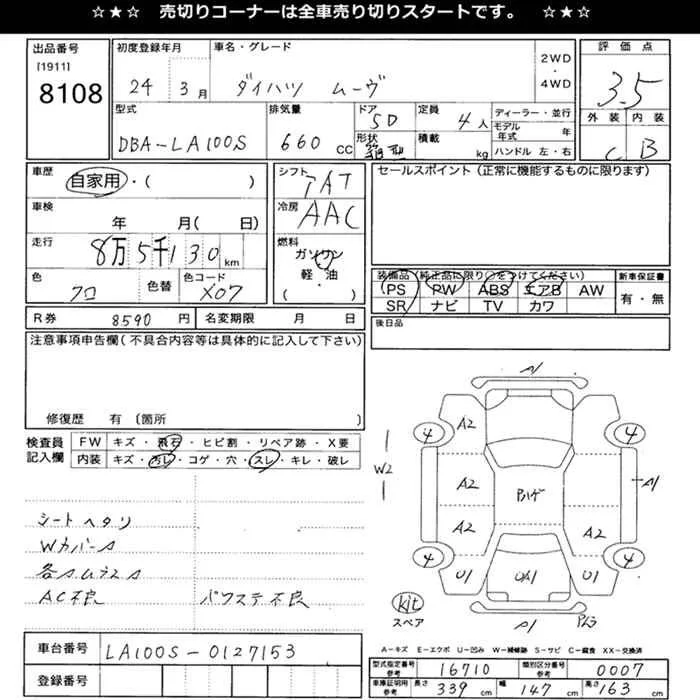 ☆★☆ 売切りコーナーは全車売り切りスタートです。 ☆★☆
出品番号
[1911]
8108
初度登録年月
24 3月
車名・グレード
ダイハツ ムーヴ
2WD
・
4WD
評価点
3.5
外装 内装
C B
型式
DBA-LA100S
排気量
660 CC
ドア
5D
形状
箱型
定員
4人
積載
kg
ディーラー・並行
モデル年式 年
ハンドル 左・右
車歴
自家用・( )
車検
年 月( 日)
走行
8万5千130km
色
クロ
色替
色コード
X07
シフト
IAT
冷房
AAC
燃料
ガソリン
軽・油
・( )
セールスポイント(正常に機能するものに限ります)
装備品(純正品に限り○をつけてください)
PS PW ABS エアB AW
SR ナビ TV カワ
新車保証書
有・無
R券 8590円
名変期限 月 日
後日品
注意事項申告欄(不具合内容等は具体的に記入して下さい)
修復歴 有 〔箇所 〕
検査員記入欄
FW キズ・飛石・ヒビ割・リペア跡・X要
内装 キズ・汚レ・コゲ・穴・スレ・キレ・破レ
シートヘタリ
WカバーA
AC不良 パワステ不良
車台番号 LA100S-0127153
登録番号
A1
4 A2 4
W2
A2 Pハゲ A1
A2 A2
4 4
U1 U1
A1 P13
kit
スペア
A-キズ E-エクボ U-凹み W-補修跡 S-サビ C-腐食 XX-交換済
型式指定番号 16710
類別区分番号 0007
車庫証明用参考 長さ 339cm 幅 147cm 高さ 163cm